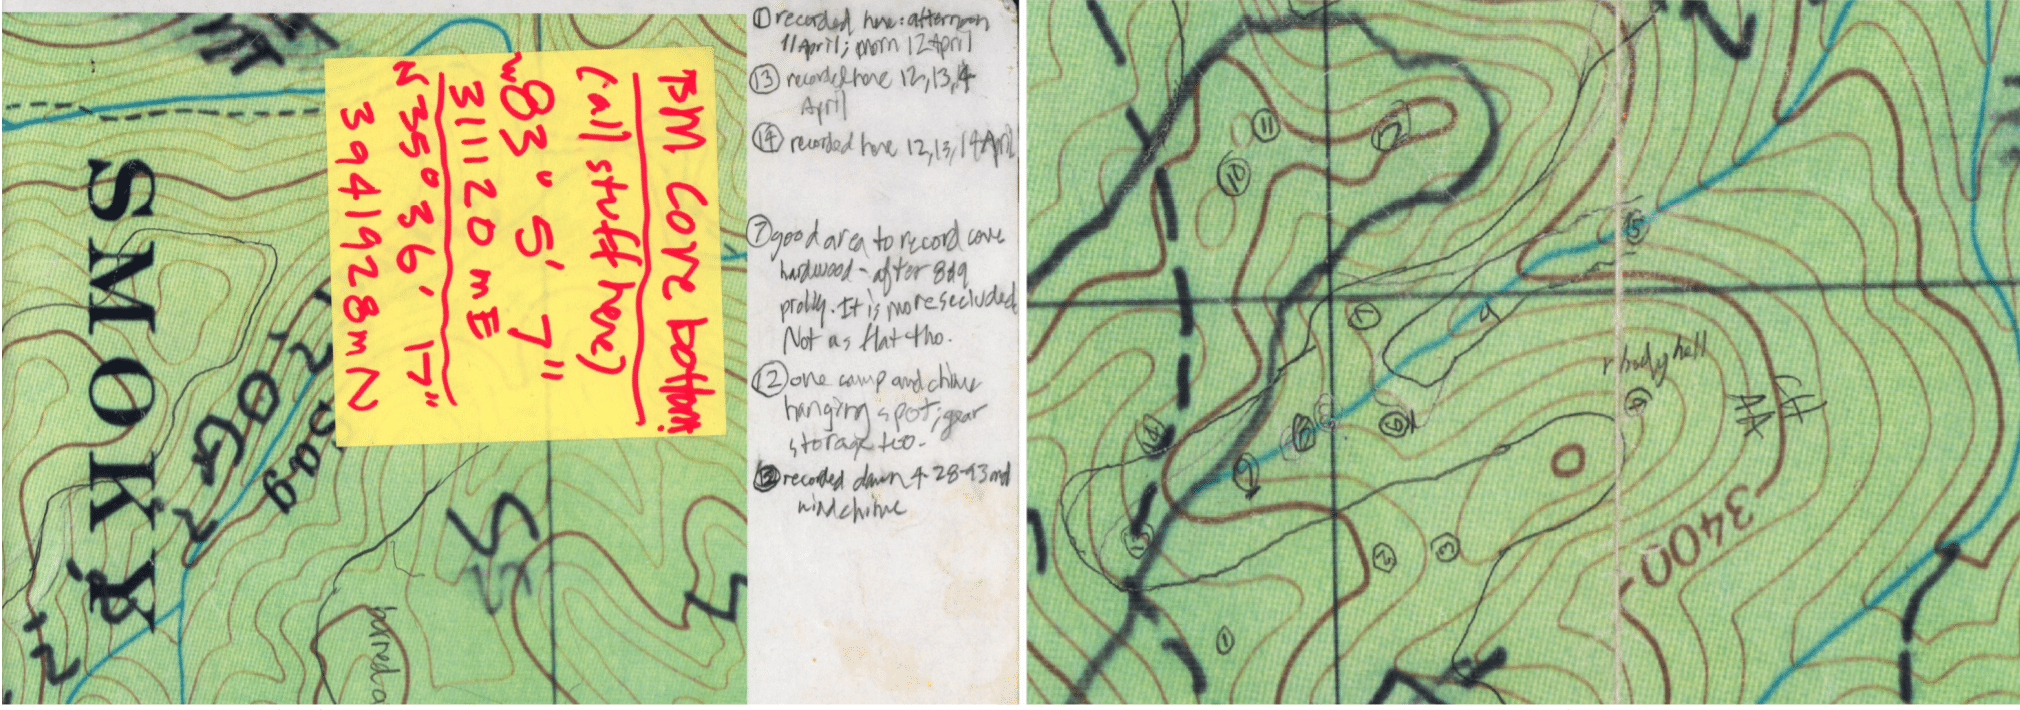 SMOKY
LOG
Sag
burned a
BM Cove bottom
(all stuff here)
W 83° 5' 7"
311120 mE
N 35° 36' 17"
3941928 m N
① recorded here: afternoon
11 April; morn 12 April
⑬ recorded here 12, 13, 14
April
⑭ recorded here 12, 13, 14 April
⑦ good area to record cove
hardwood - after 8 & 9
prolly. It is more secluded
Not as flat tho.
⑫ one camp and chime
hanging spot; gear
storage too.
⑫ recorded dawn 4-28-93 and
windchime
11
10
12
15
7
4
rhody hell
14
8
6
9
13
2
3
1
3400